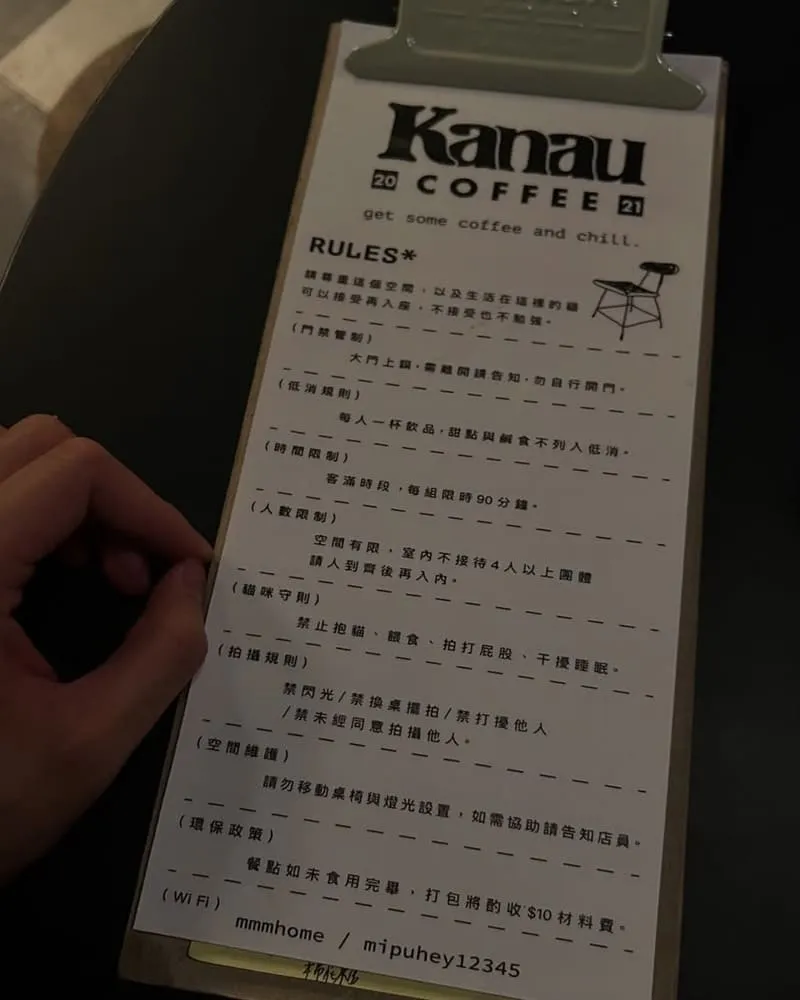 Kanau
20 COFFEE 21
get some coffee and chill.
RULES*
請尊重這個空間，以及生活在這裡的貓
可以接受再入座，不接受也不勉強。
(門禁管制)
大門上鎖，需離開請告知，勿自行開門。
(低消規則)
每人一杯飲品，甜點與鹹食不列入低消。
(時間限制)
客滿時段，每組限時90分鐘。
(人數限制)
空間有限，室內不接待4人以上團體
請人到齊後再入內。
(貓咪守則)
禁止抱貓、餵食、拍打屁股、干擾睡眠。
(拍攝規則)
禁閃光/禁換桌擺拍/禁打擾他人
/禁未經同意拍攝他人。
(空間維護)
請勿移動桌椅與燈光設置，如需協助請告知店員。
(環保政策)
餐點如未食用完畢，打包將酌收$10材料費。
(WiFi)
mmmhome / mipuhey12345